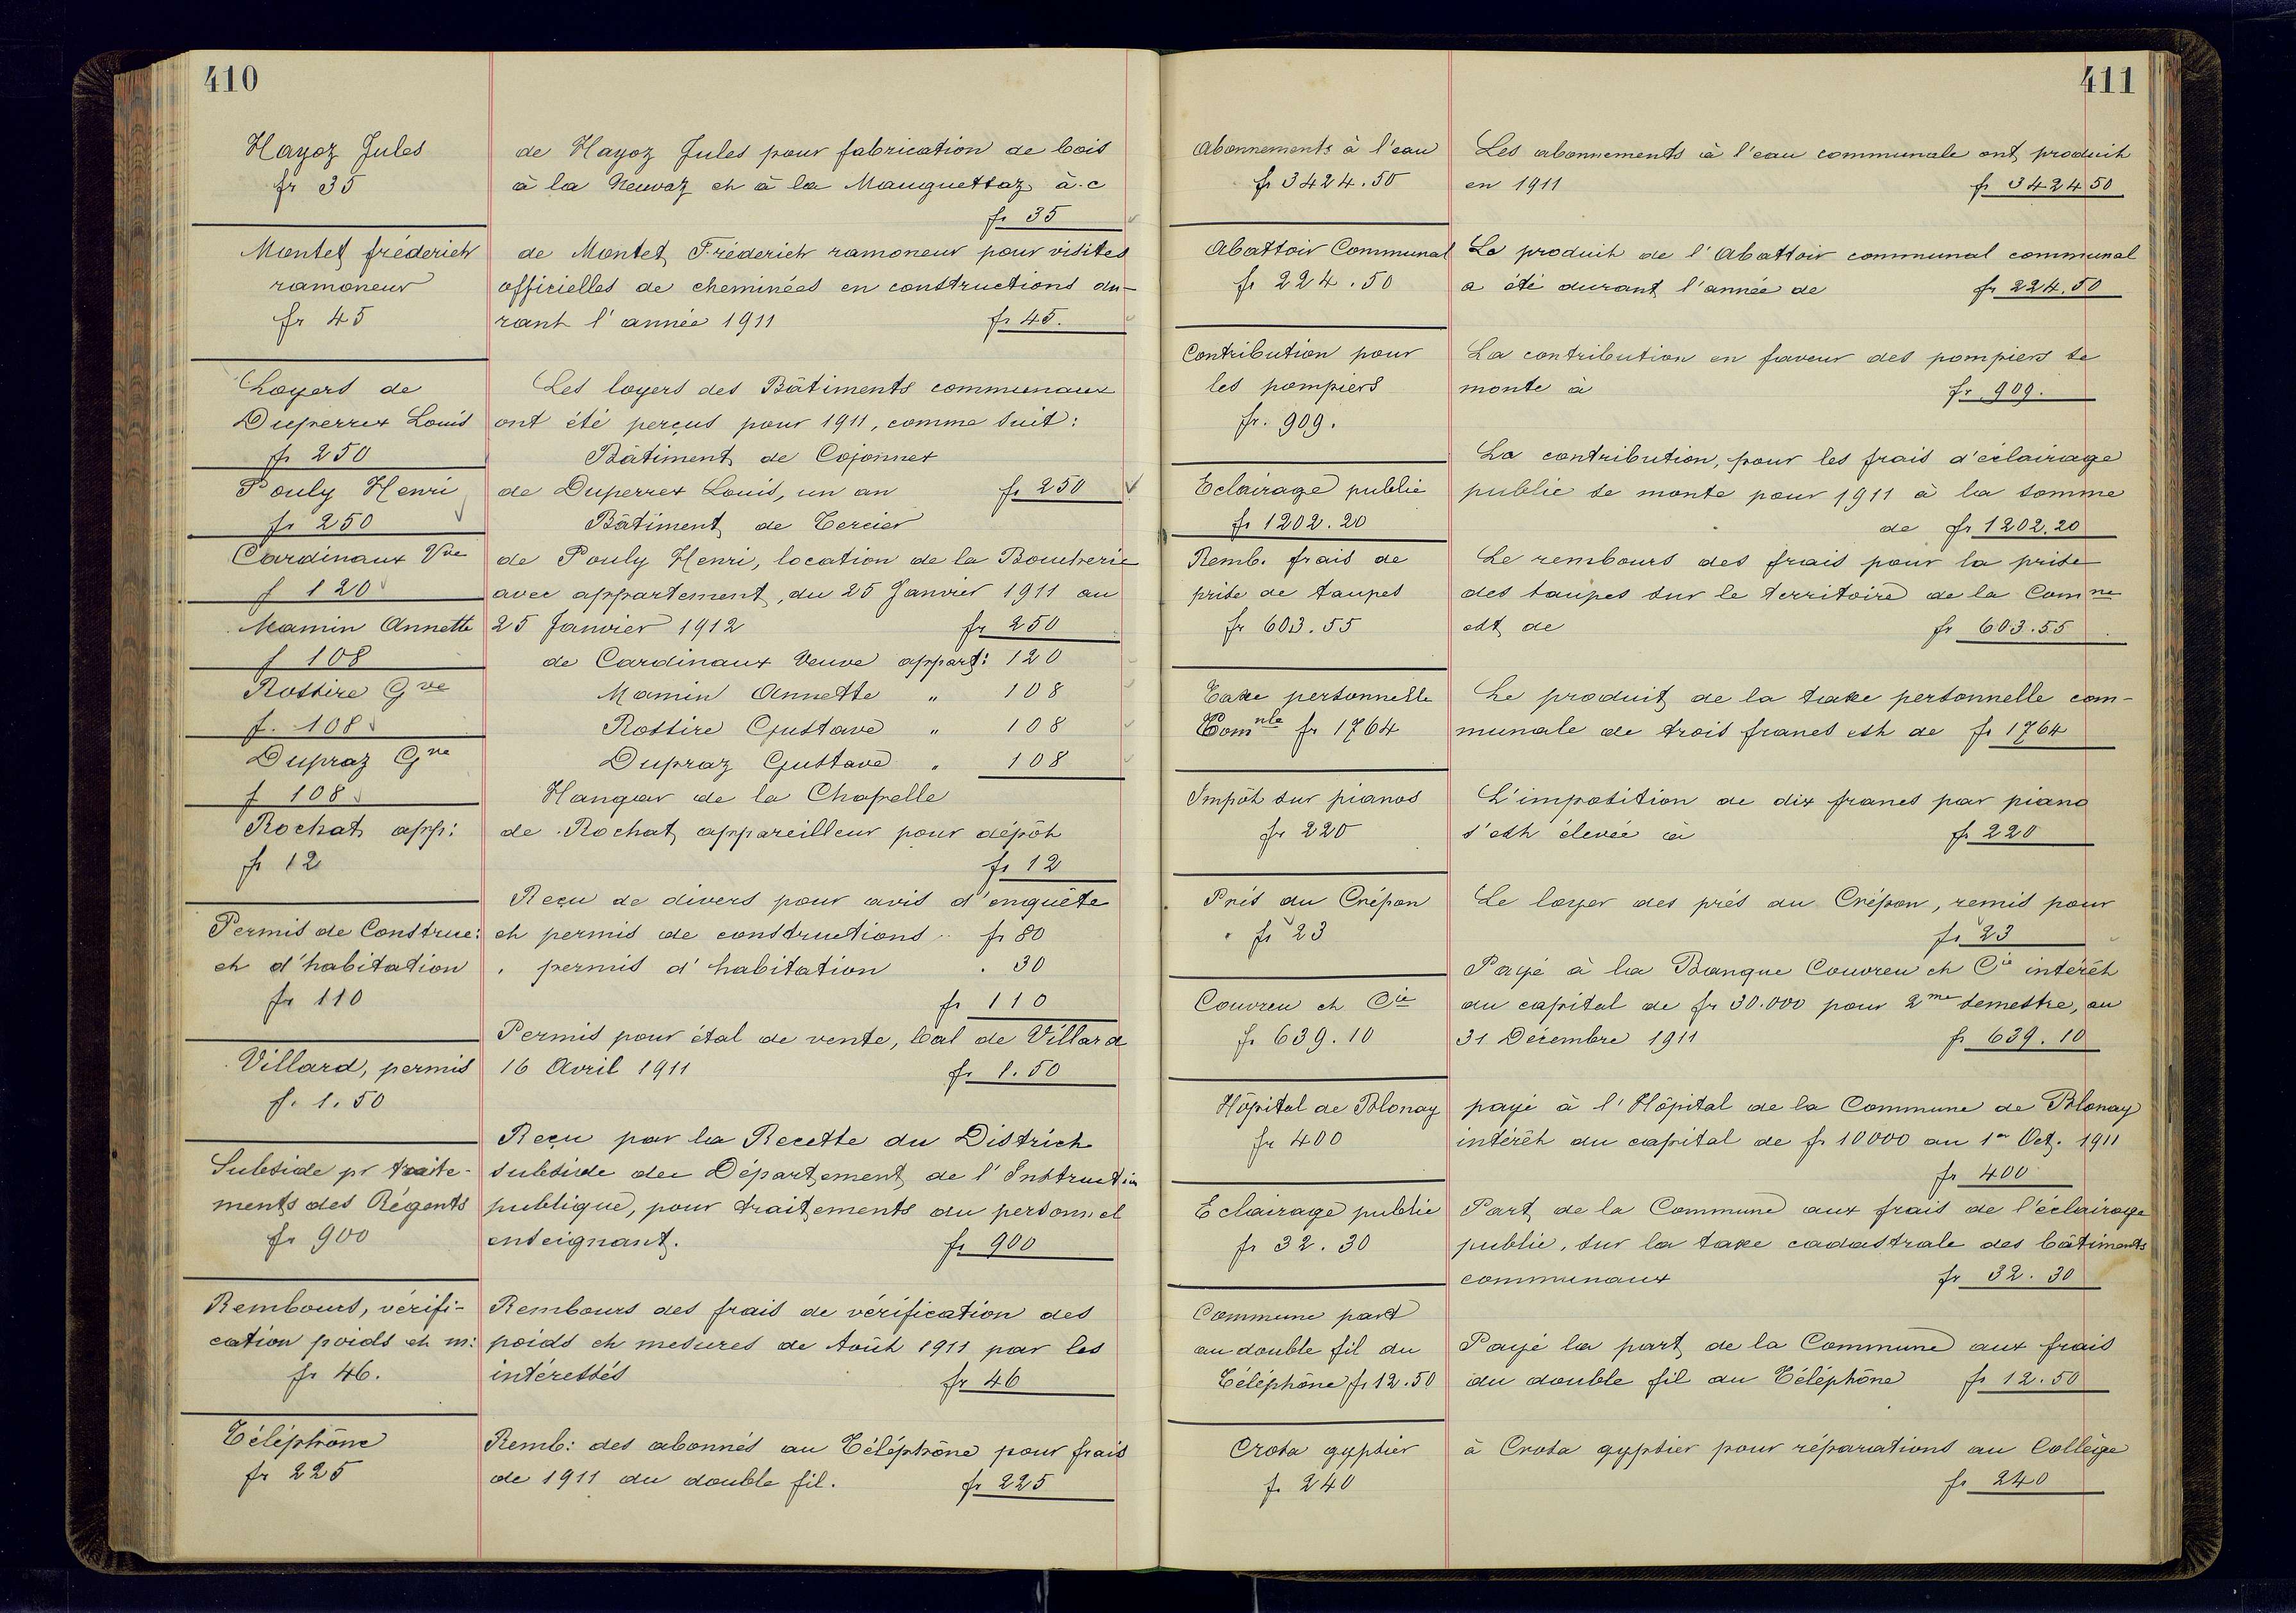 410
Hayoz Jules
fr 35
de Hayoz Jules pour fabrication de bois
à la Neuvaz et à la Mauguettaz à.c
fr 35
Montet fréderich
ramoneur
fr 45
de Montet Fréderich ramoneur pour visites
officielles de cheminées en constructions du-
rant l'année 1911 fr 45.
Loyers de
Duperrex Louis
fr 250
Pouly Henri
fr 250
Cardinaux Vve
f 120
Mamin Annette
f 108
Rossire Gve
f. 108
Dupraz Gve
f 108
Rochat app:
fr 12
Les loyers des Bâtiments communaux
ont été perçus pour 1911, comme suit:
Bâtiment de Cojonnex
de Duperrex Louis, un an fr 250
Bâtiment de Tercier
de Pouly Henri, location de la Boucherie
avec appartement, du 25 Janvier 1911 au
25 Janvier 1912 fr 250
de Cardinaux Veuve appart: 120
Mamin Annette " 108
Rossire Gustave " 108
Dupraz Gustave " 108
Hangar de la Chapelle
de Rochat appareilleur pour dépôt
fr 12
Permis de Construc:
et d'habitation
fr 110
Reçu de divers pour avis d'enquête
et permis de constructions fr 80
" permis d'habitation " 30
fr 110
Villard, permis
f. 1.50
Permis pour étal de vente, bal de Villard
16 Avril 1911 fr 1.50
Subside pr traite-
ments des Régents
fr 900
Reçu par la Recette du District
subside du Département de l'Instruction
publique, pour traitements du personnel
enseignant. fr 900
Rembours, vérifi-
cation poids et m:
fr 46.
Rembours des frais de vérification des
poids et mesures de Août 1911 par les
intéressés fr 46
Téléphône
fr 225
Remb: des abonnés au Téléphône pour frais
de 1911 du double fil. fr 225
411
Abonnements à l'eau
fr 3424.50
Les abonnements à l'eau communale ont produit
en 1911 fr 3424 50
Abattoir Communal
fr 224.50
Le produit de l'Abattoir communal communal
a été durant l'année de fr 224.50
Contribution pour
les pompiers
fr. 909.
La contribution en faveur des pompiers se
monte à fr. 909.
Eclairage public
fr 1202.20
La contribution, pour les frais d'éclairage
public se monte pour 1911 à la somme
de fr 1202.20
Remb. frais de
prise de taupes
fr 603.55
Le rembours des frais pour la prise
des taupes sur le territoire de la Comne
est de fr 603.55
Taxe personnelle
Comnle fr 1764
Le produit de la taxe personnelle com-
munale de trois francs est de fr 1764
Impôt sur pianos
fr 220
L'imposition de dix francs par piano
s'est élevée à fr 220
Prés du Crépon
fr 23
Le loyer des prés du Crépon, remis pour
fr 23
Couvreu et Cie
fr 639.10
Payé à la Banque Couvreu et Cie intérêt
du capital de fr 30.000 pour 2me semestre, au
31 Décembre 1911 fr 639.10
Hôpital de Blonay
fr 400
payé à l'Hôpital de la Commune de Blonay
intérêt du capital de fr 10000 au 1er Oct. 1911
fr 400
Eclairage public
fr 32.30
Part de la Commune aux frais de l'éclairage
public, sur la taxe cadastrale des bâtiments
communaux fr 32.30
Commune part
au double fil du
Téléphône fr 12.50
Payé la part de la Commune aux frais
du double fil du Téléphône fr 12.50
Crosa gypsier
f. 240
à Crosa gypsier pour réparations au Collège
fr 240